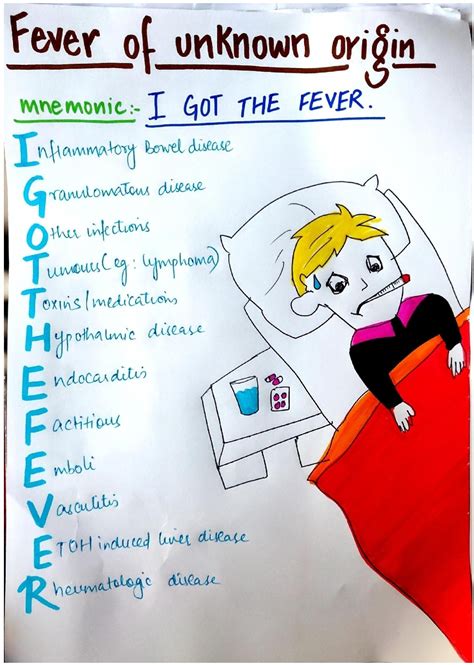 Fever of unknown origin
mnemonic:- I GOT THE FEVER.
Inflammatory Bowel disease
Granulomatous disease
Other infections
Tumours (eg: lymphoma)
Toxins/medications
Hypothalmic disease
Endocarditis
Factitious
Emboli
Vasculitis
ETOH induced liver disease
Rheumatologic disease